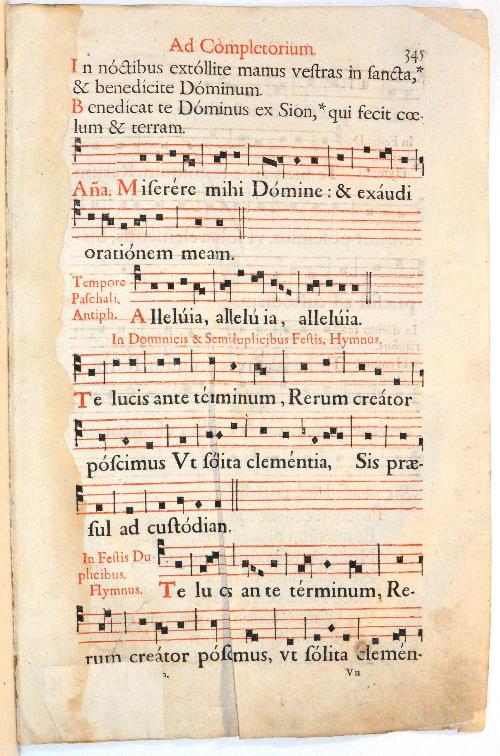 Ad Completorium.
345
In nóctibus extóllite manus veſtras in ſancta,*
& benedicite Dóminum.
Benedicat te Dóminus ex Sion,* qui fecit cœ-
lum & terram.
Aña. Miſerére mihi Dómine : & exáudi
oratiónem meam.
Tempore
Paſchali,
Antiph. Allelúia, allelúia, allelúia.
In Dominicis & Semiduplicibus Feſtis, Hymnus,
Te lucis ante términum, Rerum creátor
póſcimus Vt ſólita cleméntia, Sis præ-
ſul ad cuſtódian.
In Feſtis Du-
plicibus.
Hymnus. Te lucis ante términum, Re-
rum creátor póſcimus, vt ſólita clemén-
Vu